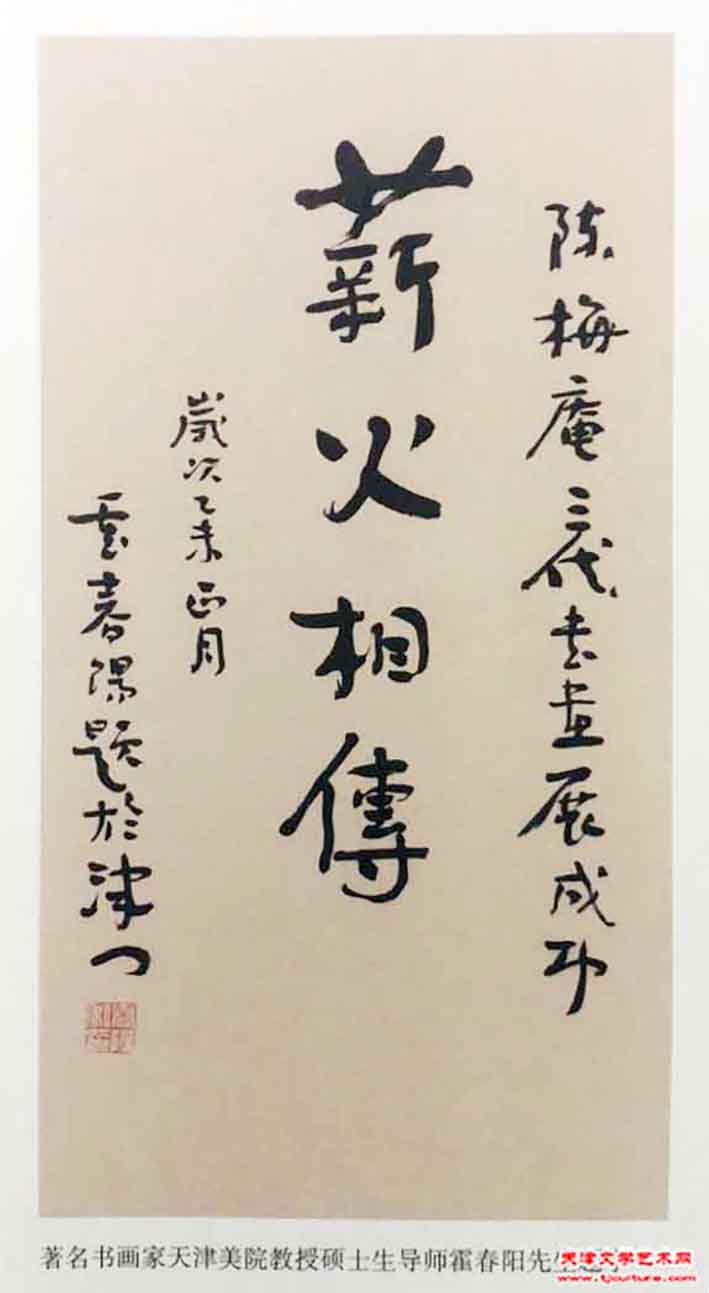 陈梅庵三代书画展成功
薪火相傳
歲次乙未正月
霍春陽題於津门
著名书画家天津美院教授硕士生导师霍春阳先生
天津文学艺术网
www.tjculture.com